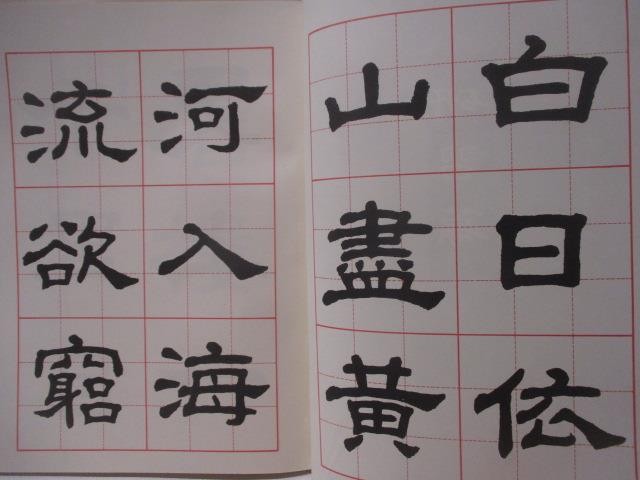 白日依
山盡黃
河入海
流欲窮